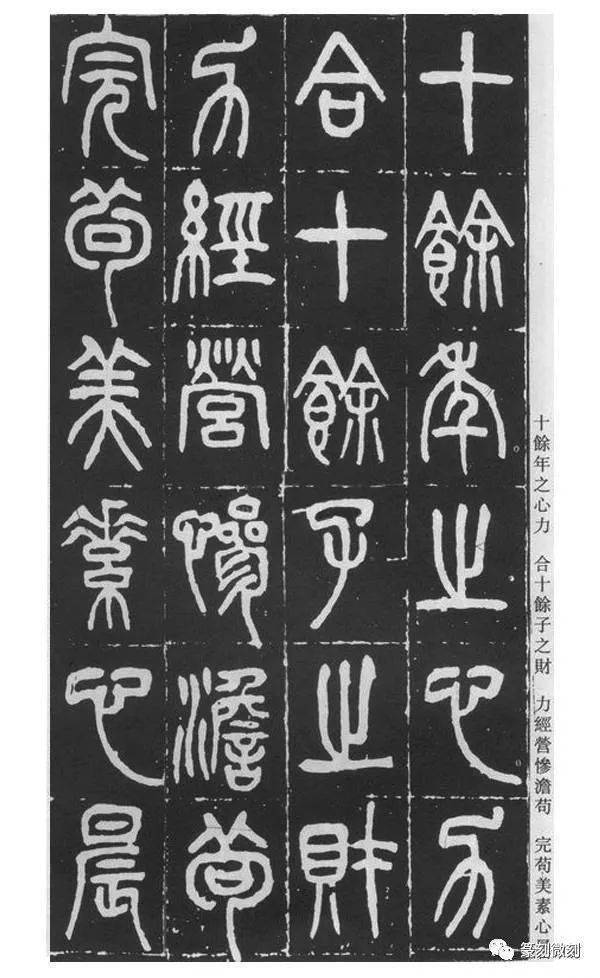 十餘年之心力
合十餘子之財
力經營慘澹苟
完苟美素心晨
十餘年之心力 合十餘子之財 力經營慘澹苟 完苟美素心
篆刻微刻